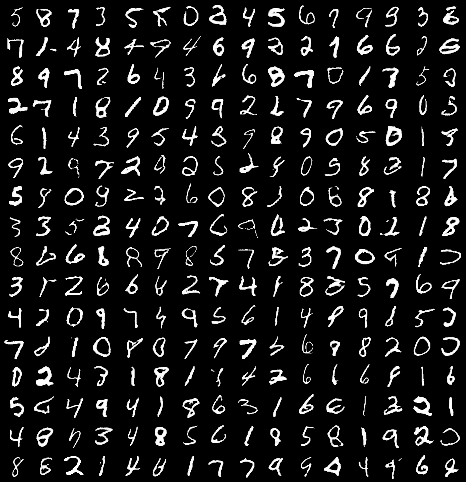 5 8 7 3 5 5 0 8 4 5 6 7 9 9 3 8
7 1 4 8 4 9 4 6 9 2 2 1 6 6 2 5
8 9 7 2 6 4 3 6 6 8 7 0 1 7 5 2
2 7 1 8 1 0 9 9 2 2 7 9 6 9 0 5
6 1 4 3 9 5 4 3 9 8 9 0 5 0 1 5
9 2 9 7 2 0 2 5 2 8 0 5 8 3 1 7
5 8 0 9 2 2 6 0 8 3 0 6 8 1 8 6
3 3 5 8 4 0 7 6 9 0 2 3 0 2 1 8
8 6 6 8 8 9 8 5 7 8 3 7 0 9 1 0
3 1 2 6 6 6 2 7 4 1 8 8 5 7 6 9
4 2 0 9 7 4 9 5 6 1 4 8 9 8 5 2
7 1 0 8 0 7 9 7 5 6 9 8 2 0 0
0 2 4 3 1 8 1 4 2 6 1 6 8 1 6
5 6 4 9 4 1 8 6 3 1 6 6 1 2 2 1
4 8 7 3 4 8 5 6 1 8 5 8 1 9 2 0
8 8 2 1 4 6 1 7 7 9 9 4 4 9 6 2